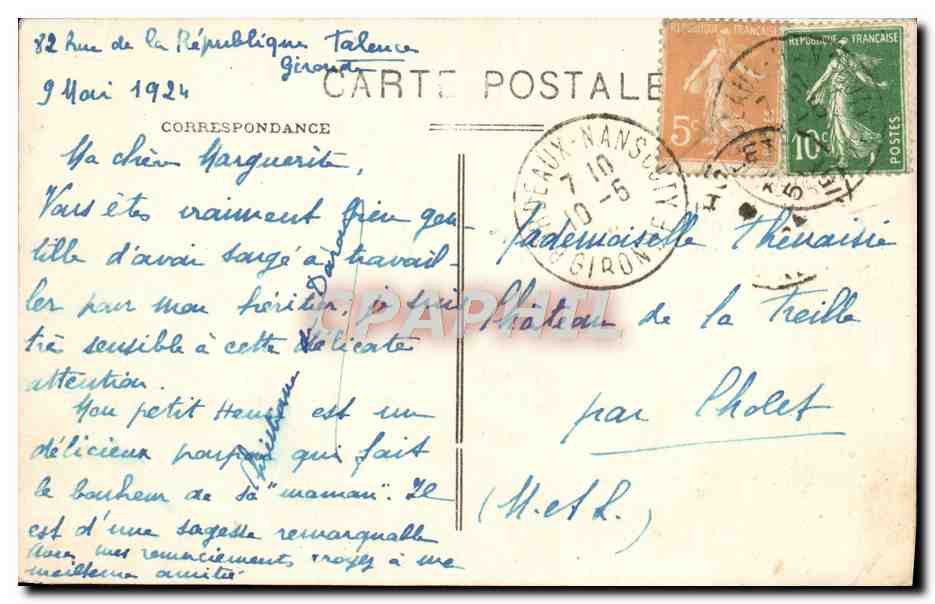 82 Rue de la République Talence
Gironde
9 Mai 1924
CARTE POSTALE
CORRESPONDANCE
Ma chère Marguerite,
Vous êtes vraiment bien gen-
tille d'avoir songé à travail-
ler pour mon héritier, je suis
très sensible à cette délicate
attention.
Mon petit Henri est un
délicieux poupon qui fait
le bonheur de sa "maman". Il
est d'une sagesse remarquable
Avec mes remerciements croyez à ma
meilleure amitié
REPUBLIQUE FRANÇAISE
5c
REPUBLIQUE FRANÇAISE
10c
POSTES
BORDEAUX-NANSOUTY
7 10
10 -5
GIRONDE
Mademoiselle Thénaisie
Château de la Treille
par Cholet
(M. et L.)
CPAPHIL